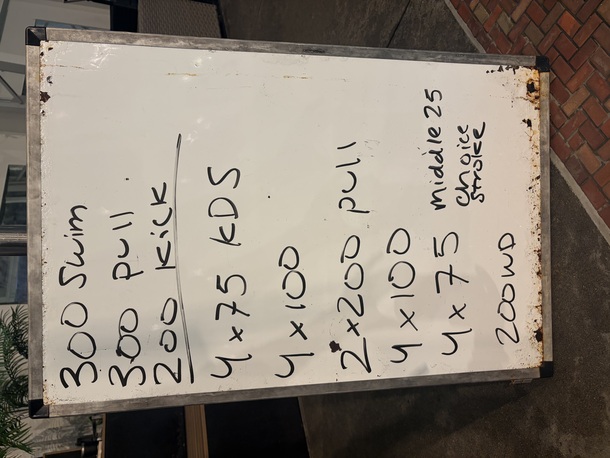 300 Swim
300 pull
200 kick
4 x 75 KDS
4 x 100
2 x 200 pull
4 x 100
4 x 75 middle 25
choice
stroke
200 WD